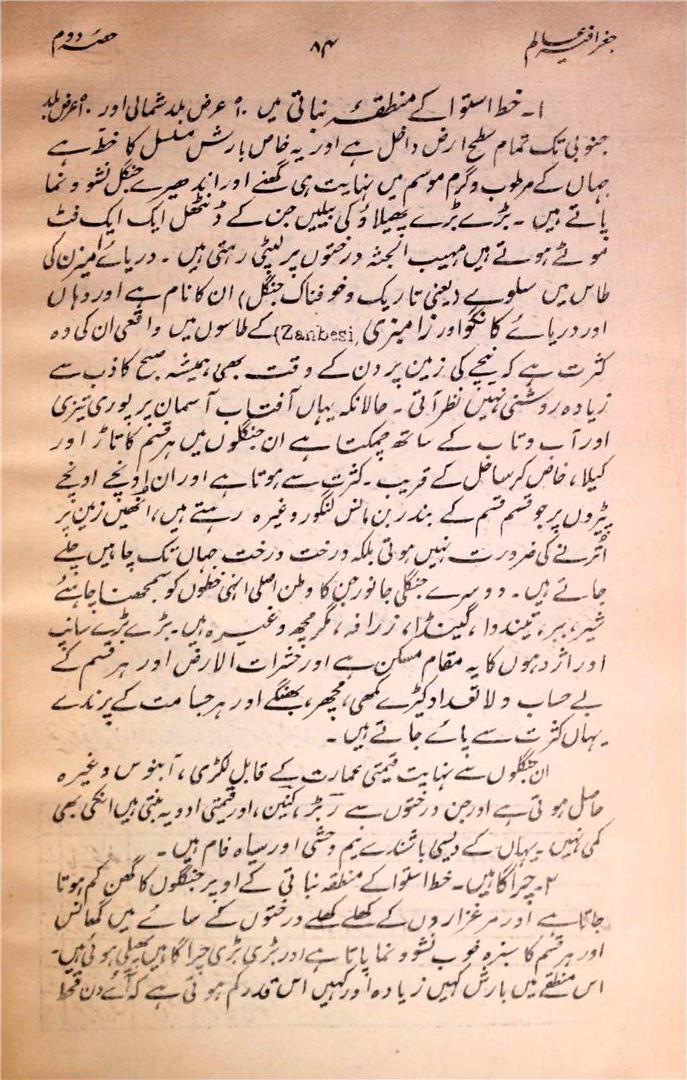 جغرافیہ عالم ۸۴ حصہ دوم
۱۔ خط استوا کے منطقۂ نباتی میں ۱۰ْ عرض بلد شمالی اور ۱۰ْ عرض بلد
جنوبی تک تمام سطح ارض داخل ہے اور یہ خاص بارش مسلسل کا خطہ ہے
جہاں کے مرطوب و گرم موسم میں نہایت ہی گھنے اور اندھیرے جنگل نشو و نما
پاتے ہیں ۔ بڑے بڑے پھیلاؤ کی بیلیں جن کے ڈنٹھل ایک ایک فٹ
موٹے ہوتے ہیں مہیب الجثہ درختوں پر لپٹی رہتی ہیں ۔ دریائے امیزن کی
طاس میں سلوے (یعنی تاریک و خوفناک جنگل) ان کا نام ہے اور وہاں
اور دریائے کانگو اور زامبزی (Zanbesi) کے طاسوں میں واقعی ان کی وہ
کثرت ہے کہ نیچے کی زمین پر دن کے وقت بھی ہمیشہ صبح کاذب سے
زیادہ روشنی نہیں نظر آتی ۔ حالانکہ یہاں آفتاب آسمان پر پوری تیزی
اور آب و تاب کے ساتھ چمکتا ہے ان جنگلوں میں ہر قسم کا تاڑ اور
کیلا، خاص کر ساحل کے قریب ۔ کثرت سے ہوتا ہے اور ان اونچے اونچے
پیڑوں پر جو قسم قسم کے بندر بن مانس لنگور وغیرہ رہتے ہیں، انھیں زمین پر
اترنے کی ضرورت نہیں ہوتی بلکہ درخت درخت جہاں تک چاہیں چلے
جاتے ہیں ۔ دوسرے جنگلی جانور جن کا وطن اصلی انہی خطوں کو سمجھنا چاہئے
شیر، ببر، تیندوا، گینڈا، زرافہ، مگرمچھ وغیرہ ہیں۔ بڑے بڑے سانپ
اور اژدہوں کا یہ مقام مسکن ہے اور حشرات الارض اور ہر قسم کے
بے حساب و لا تعداد کیڑے مکھی، مچھر، بھنگے اور ہر جسامت کے پرندے
یہاں کثرت سے پائے جاتے ہیں ۔
ان جنگلوں سے نہایت قیمتی عمارت کے قابل لکڑی، آبنوس وغیرہ
حاصل ہوتی ہے اور جن درختوں سے ربڑ، کنین، اور قیمتی ادویہ بنتی ہیں انکی بھی
کمی نہیں ۔ یہاں کے دیسی باشندے نیم وحشی اور سیاہ فام ہیں ۔
۲۔ چراگاہیں ۔ خط استوا کے منطقہ نباتی کے اوپر جنگلوں کا گھن کم ہوتا
جاتا ہے اور مرغزاروں کے کھلے کھلے درختوں کے سائے میں گھانس
اور ہر قسم کا سبزہ خوب نشو و نما پاتا ہے اور بڑی بڑی چراگاہیں پھیلی ہوئی ہیں۔
اس منطقے میں بارش کہیں زیادہ اور کہیں اس قدر کم ہوتی ہے کہ آئے دن قحط